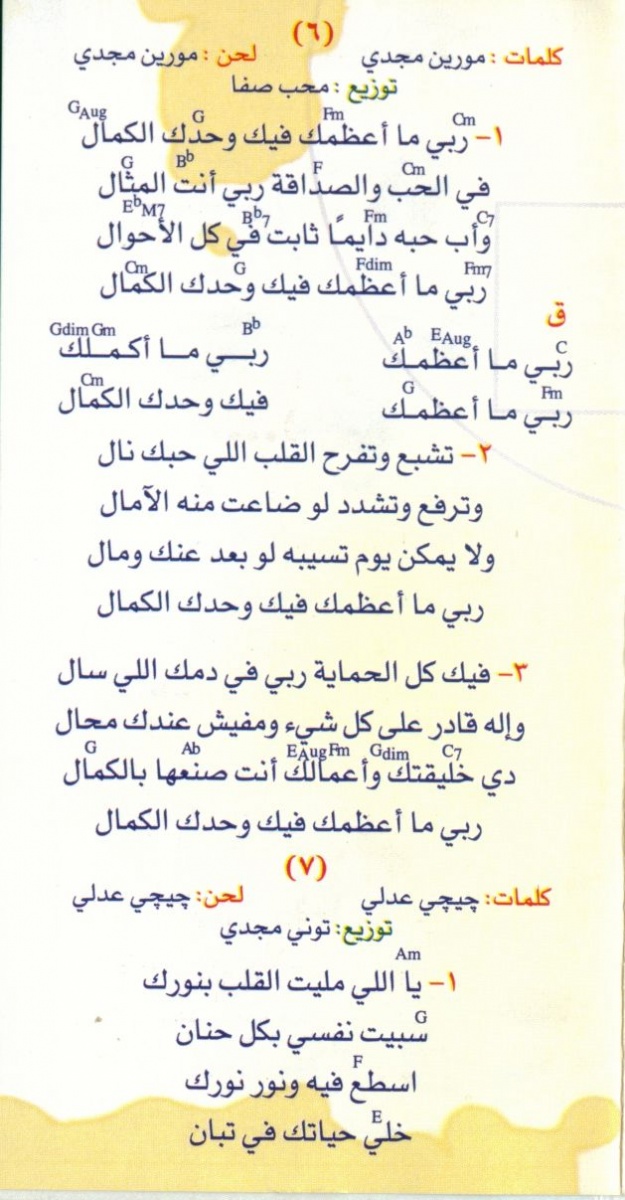 (٦)
كلمات : مورين مجدي لحن : مورين مجدي
توزيع : محب صفا
Cm Fm G GAug
١- ربي ما أعظمك فيك وحدك الكمال
Cm F Bb G
في الحب والصداقة ربي أنت المثال
C7 Fm Bb7 EbM7
وأب حبه دايمًا ثابت في كل الأحوال
Fm7 Fdim G Cm
ربي ما أعظمك فيك وحدك الكمال
ق
C EAug Ab Bb Gm Gdim
ربـي مـا أعظمـك ربـــي مــا أكـمـلك
Fm G Cm
ربـي مـا أعظمـك فيك وحدك الكمال
٢- تشبع وتفرح القلب اللي حبك نال
وترفع وتشدد لو ضاعت منه الآمال
ولا يمكن يوم تسيبه لو بعد عنك ومال
ربي ما أعظمك فيك وحدك الكمال
٣- فيك كل الحماية ربي في دمك اللي سال
وإله قادر على كل شيء ومفيش عندك محال
C7 Gdim Fm EAug Ab G
دي خليقتك وأعمالك أنت صنعها بالكمال
ربي ما أعظمك فيك وحدك الكمال
(٧)
كلمات: چيچي عدلي لحن: چيچي عدلي
توزيع: توني مجدي
Am
١- يا اللي مليت القلب بنورك
G
سبيت نفسي بكل حنان
F
اسطع فيه ونور نورك
E
خلي حياتك في تبان